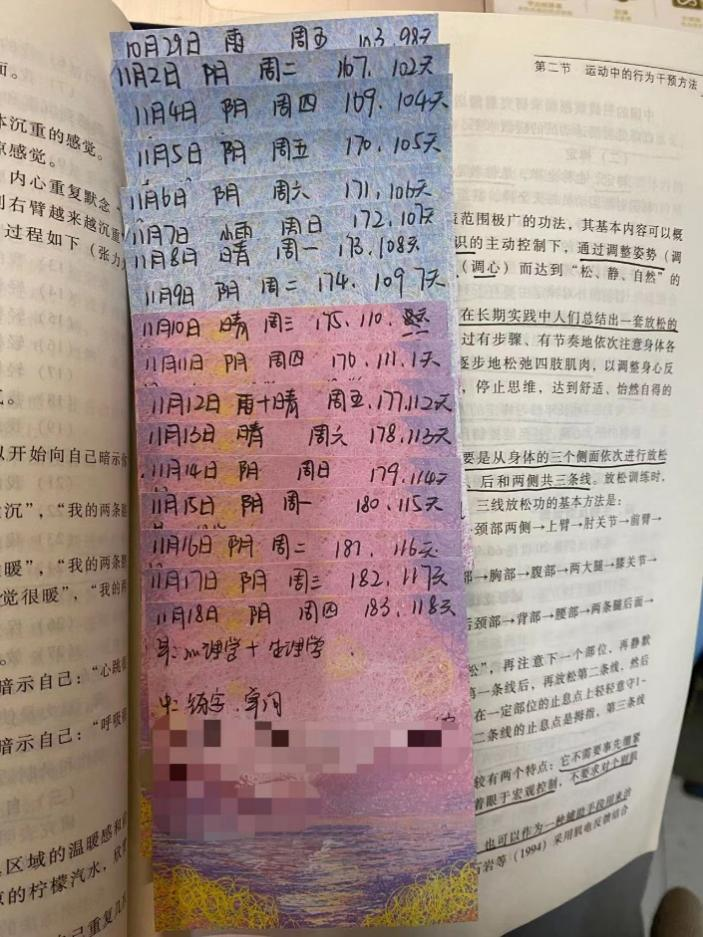 第二节 运动中的行为干预方法
10月29日 雨 周五 163. 98天
11月2日 阴 周二 167. 102天
11月4日 阴 周四 169. 104天
11月5日 阴 周五 170. 105天
11月6日 阴 周六 171, 106天
11月7日 小雨 周日 172. 107天
11月8日 晴 周一 173. 108天
11月9日 阴 周二 174. 109天
11月10日 晴 周三 175. 110.
11月11日 阴 周四 176. 111.1天
11月12日 雨+晴 周五.177.112天
11月13日 晴 周六 178.113天
11月14日 阴 周日 179.114天
11月15日 阴 周一 180.115天
11月16日 阴 周二 181. 116天
11月17日 阴 周三 182. 117天
11月18日 阴 周四 183. 118天
早:心理学+生理学
中:练字.
面。
体沉重的感觉。
凉感觉。
内心重复默念
到右臂越来越沉重
过程如下(张力
以开始向自己暗示
沉”,“我的两条腿
暖”,“我的两
觉很暖”,“我的两
暗示自己:“心跳
暗示自己:“呼吸
区域的温暖感和
凉的柠檬汽水,
自己重复几
范围极广的功法,其基本内容可以概
识的主动控制下,通过调整姿势(调
(调心)而达到“松、静、自然”的
在长期实践中人们总结出一套放松的
过有步骤、有节奏地依次注意身体各
逐步地松弛四肢肌肉,以调整身心反
,停止思维,达到舒适、怡然自得的
要是从身体的三个侧面依次进行放松
后和两侧共三条线。放松训练时,
三线放松功的基本方法是:
颈部两侧→上臂→肘关节→前臂→
部→胸部→腹部→两大腿→膝关节→
后颈部→背部→腰部→两条腿后面→
松”,再注意下一个部位,再静默
第一条线后,再放松第二条线,然后
在一定部位的止息点上轻轻意守1~
二条线的止息点是拇指,第三条线
较有两个特点:它不需要事先绷紧
着眼于宏观控制,不要求对个别肌
也可以作为一种辅助手段用来治
石岩等(1994)采用肌电反馈结合